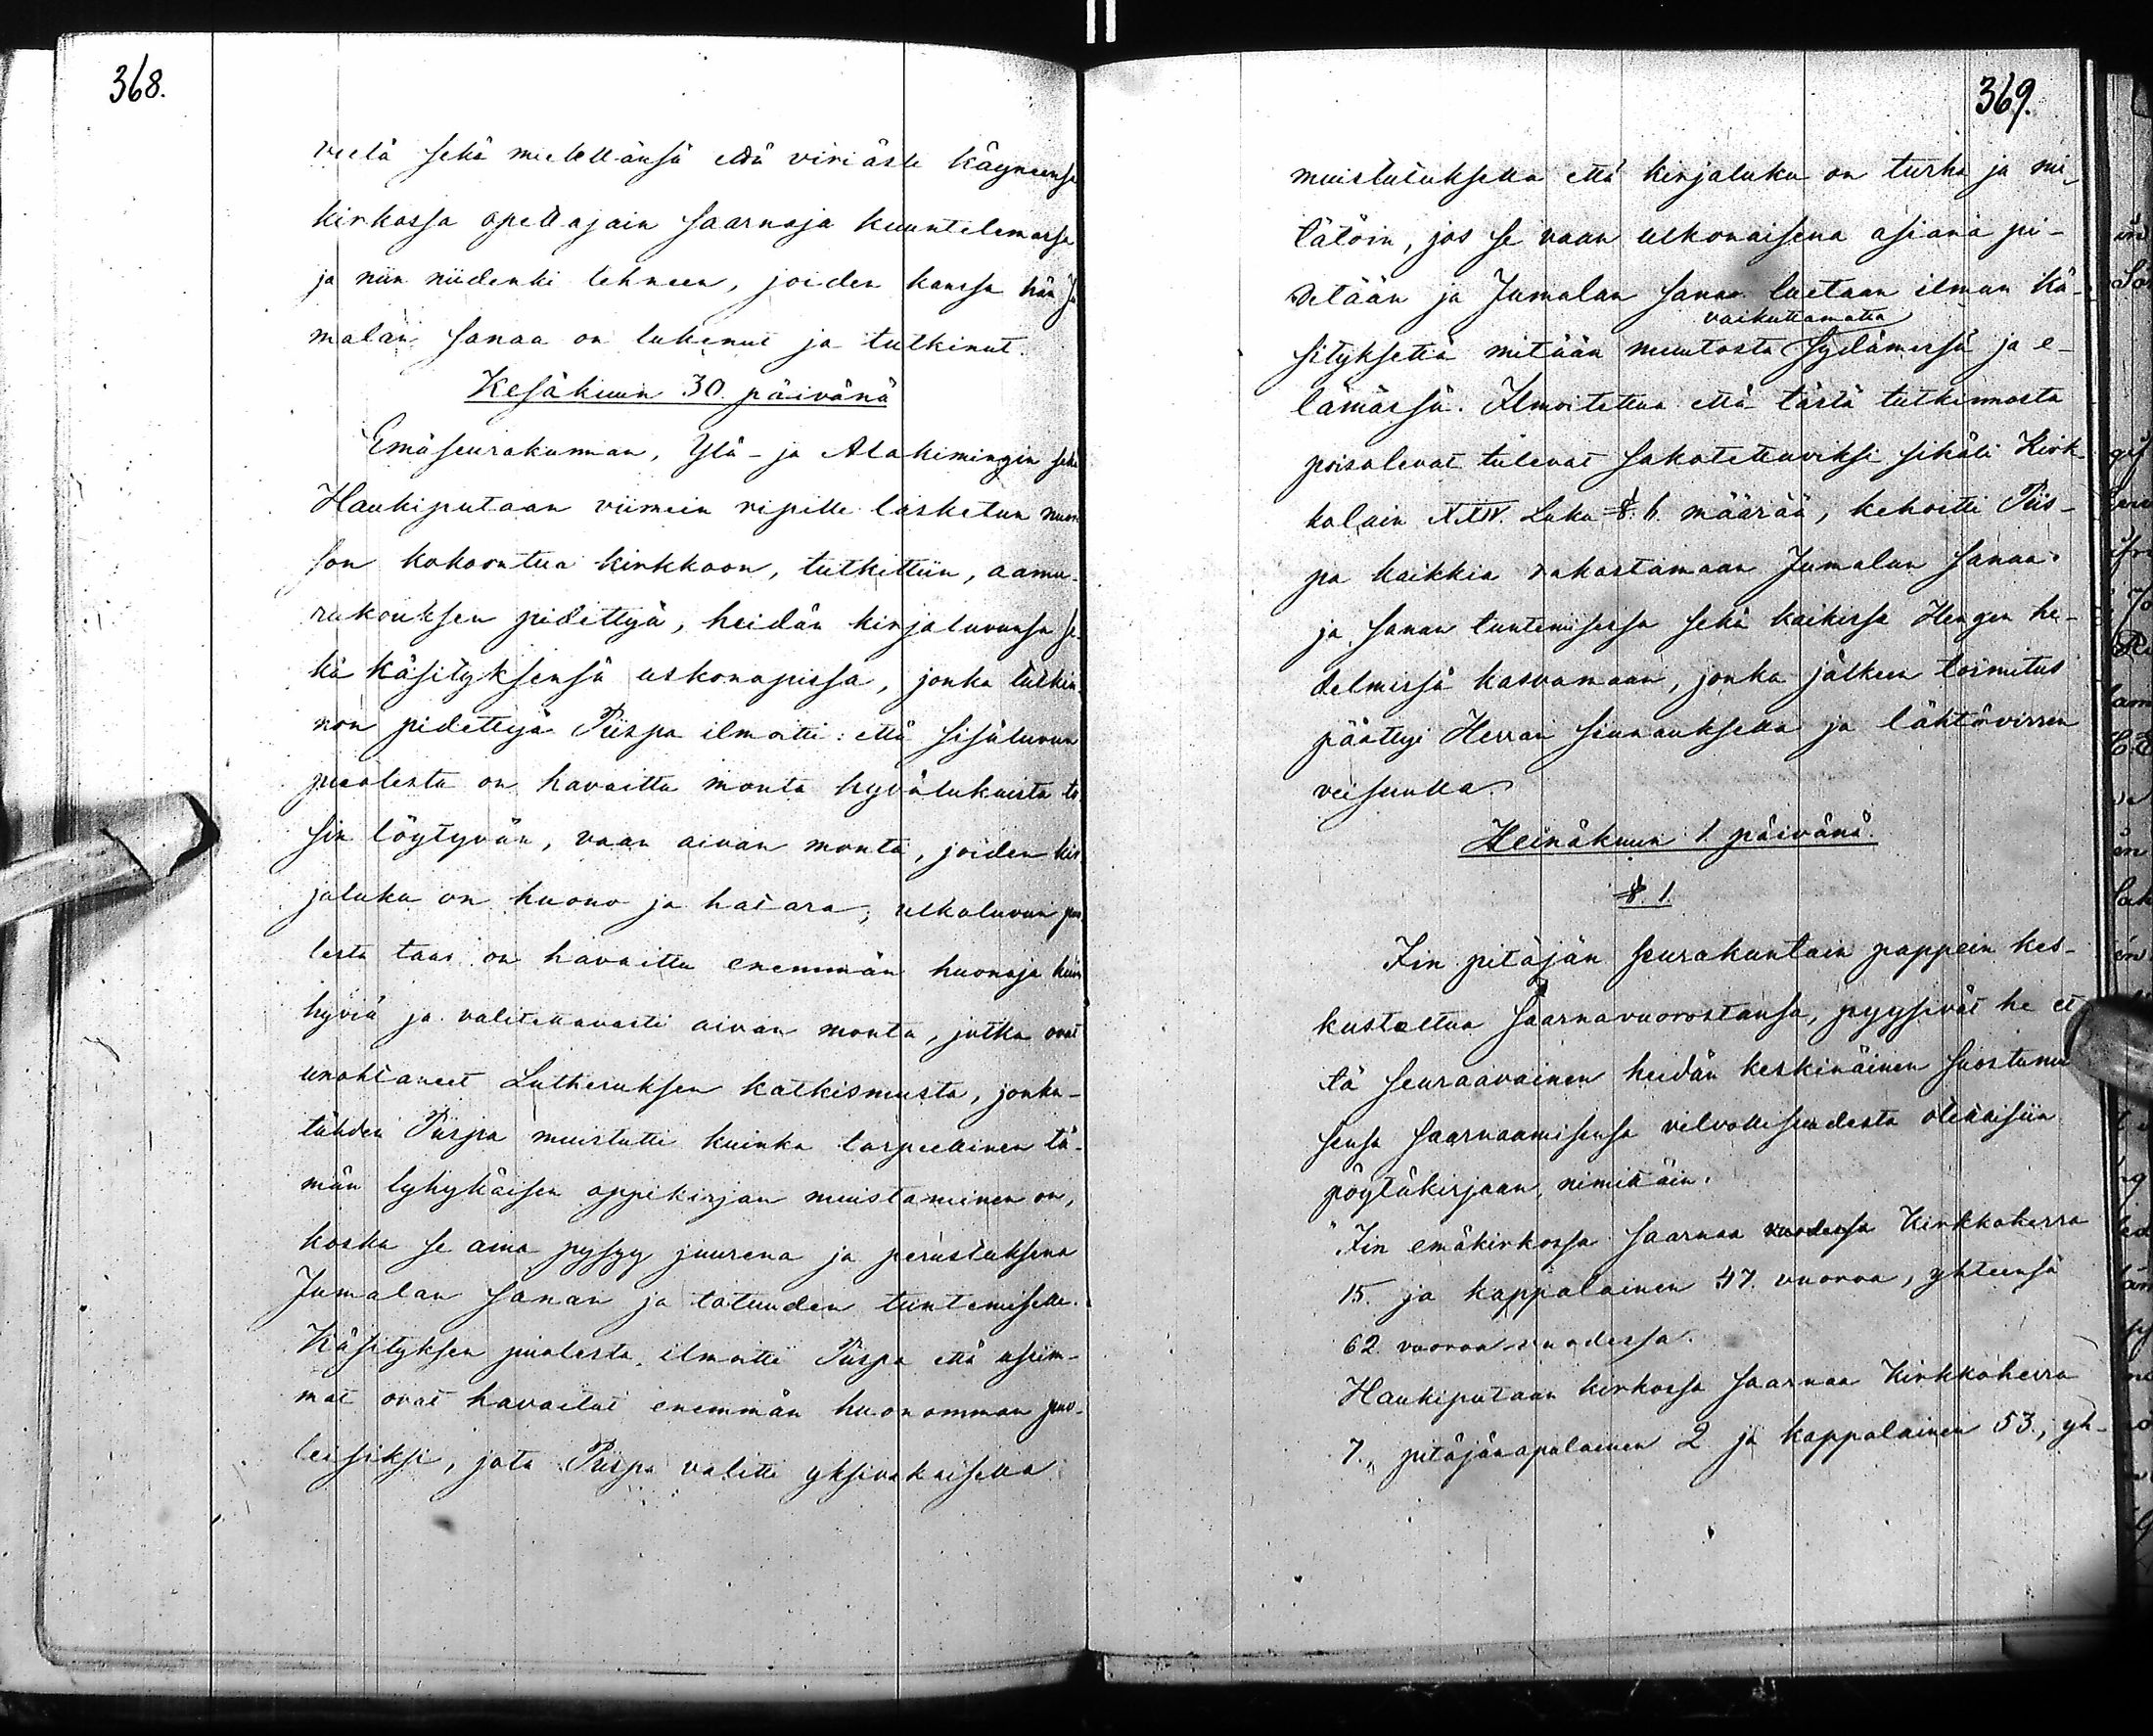 368.
vielä sekä mielellänsä että viriästi käyneensä
kirkossa opettajain saarnoja kuuntelemassa
ja niin niidenki tehneen, joiden kanssa hän Ju
malan sanaa on lukenut ja tutkinut.
Kesäkuun 30. päivänä
Emäseurakunnan, Ylä- ja Alakimingin sekä
Haukiputaan viimein ripille lasketun nuori
son kokoontua kirkkoon, tutkittiin, aamu-
rukouksen pidettyä, heidän kirjaluvunsa se-
kä käsityksensä uskonopissa, jonka tutkin-
non pidettyä Piispa ilmoitti: että sisäluvun
puolesta on havaittu monta hyvälukuista to-
sin löytyvän, vaan aivan monta, joiden kir
jaluku on huono ja hatara; ulkoluvun puo
lesta taas on havaittu enemmän huonoja kuin
hyviä ja valitettavasti aivan monta, jotka ovat
unohtaneet Lutheruksen katkismusta, jonka-
tähden Piispa muistutti kuinka tarpeellinen tä-
män lyhykäisen oppikirjan muistaminen on,
koska se aina pysyy juurena ja perustuksena
Jumalan sanan ja totuuden tuntemiselle.
Käsityksen puolesta, ilmoitti Piispa että usiim-
mat ovat havaitut enemmän huonomman puo-
leisiksi, jota Piispa valitti yksivakaisella
369.
muistutuksella että kirjaluku on turha ja mi-
tätöin, jos se vaan ulkonaisena asiana pi-
detään ja Jumalan sanaa luetaan ilman kä-
vaikuttamatta
sityksettä mitään muutosta sydämessä ja e-
lämässä. Ilmoitettua että tästä tutkinnosta
poisolevat tulevat sakotettaviksi sikäli Kirk-
kolain XXIV. Luku §. 6. määrää, kehoitti Piis-
pa kaikkia rakastamaan Jumalan sanaa
ja sanan tuntemisessa sekä kaikissa Hengen he-
delmissä kasvamaan, jonka jälkeen toimitus
päättyi Herran siunauksella ja lähtövirren
veisuulla.
Heinäkuun 1 päivänä.
§. 1.
Iin pitäjän seurakuntain pappein kes-
kusteltua saarnavuorostansa, pyysivät he et
tä seuraavainen heidän keskinäinen suostumu
sensa saarnaamisensa velvollisuudesta otettaisiin
pöytäkirjaan, nimittäin.
"Iin emäkirkossa saarnaa vuodessa Kirkkoherra
15. ja kappalainen 47. vuoroa, yhteensä
62 vuoroa vuodessa.
Haukiputaan kirkossa saarnaa Kirkkoherra
7., pitäjänapulainen 2 ja kappalainen 53., yh-